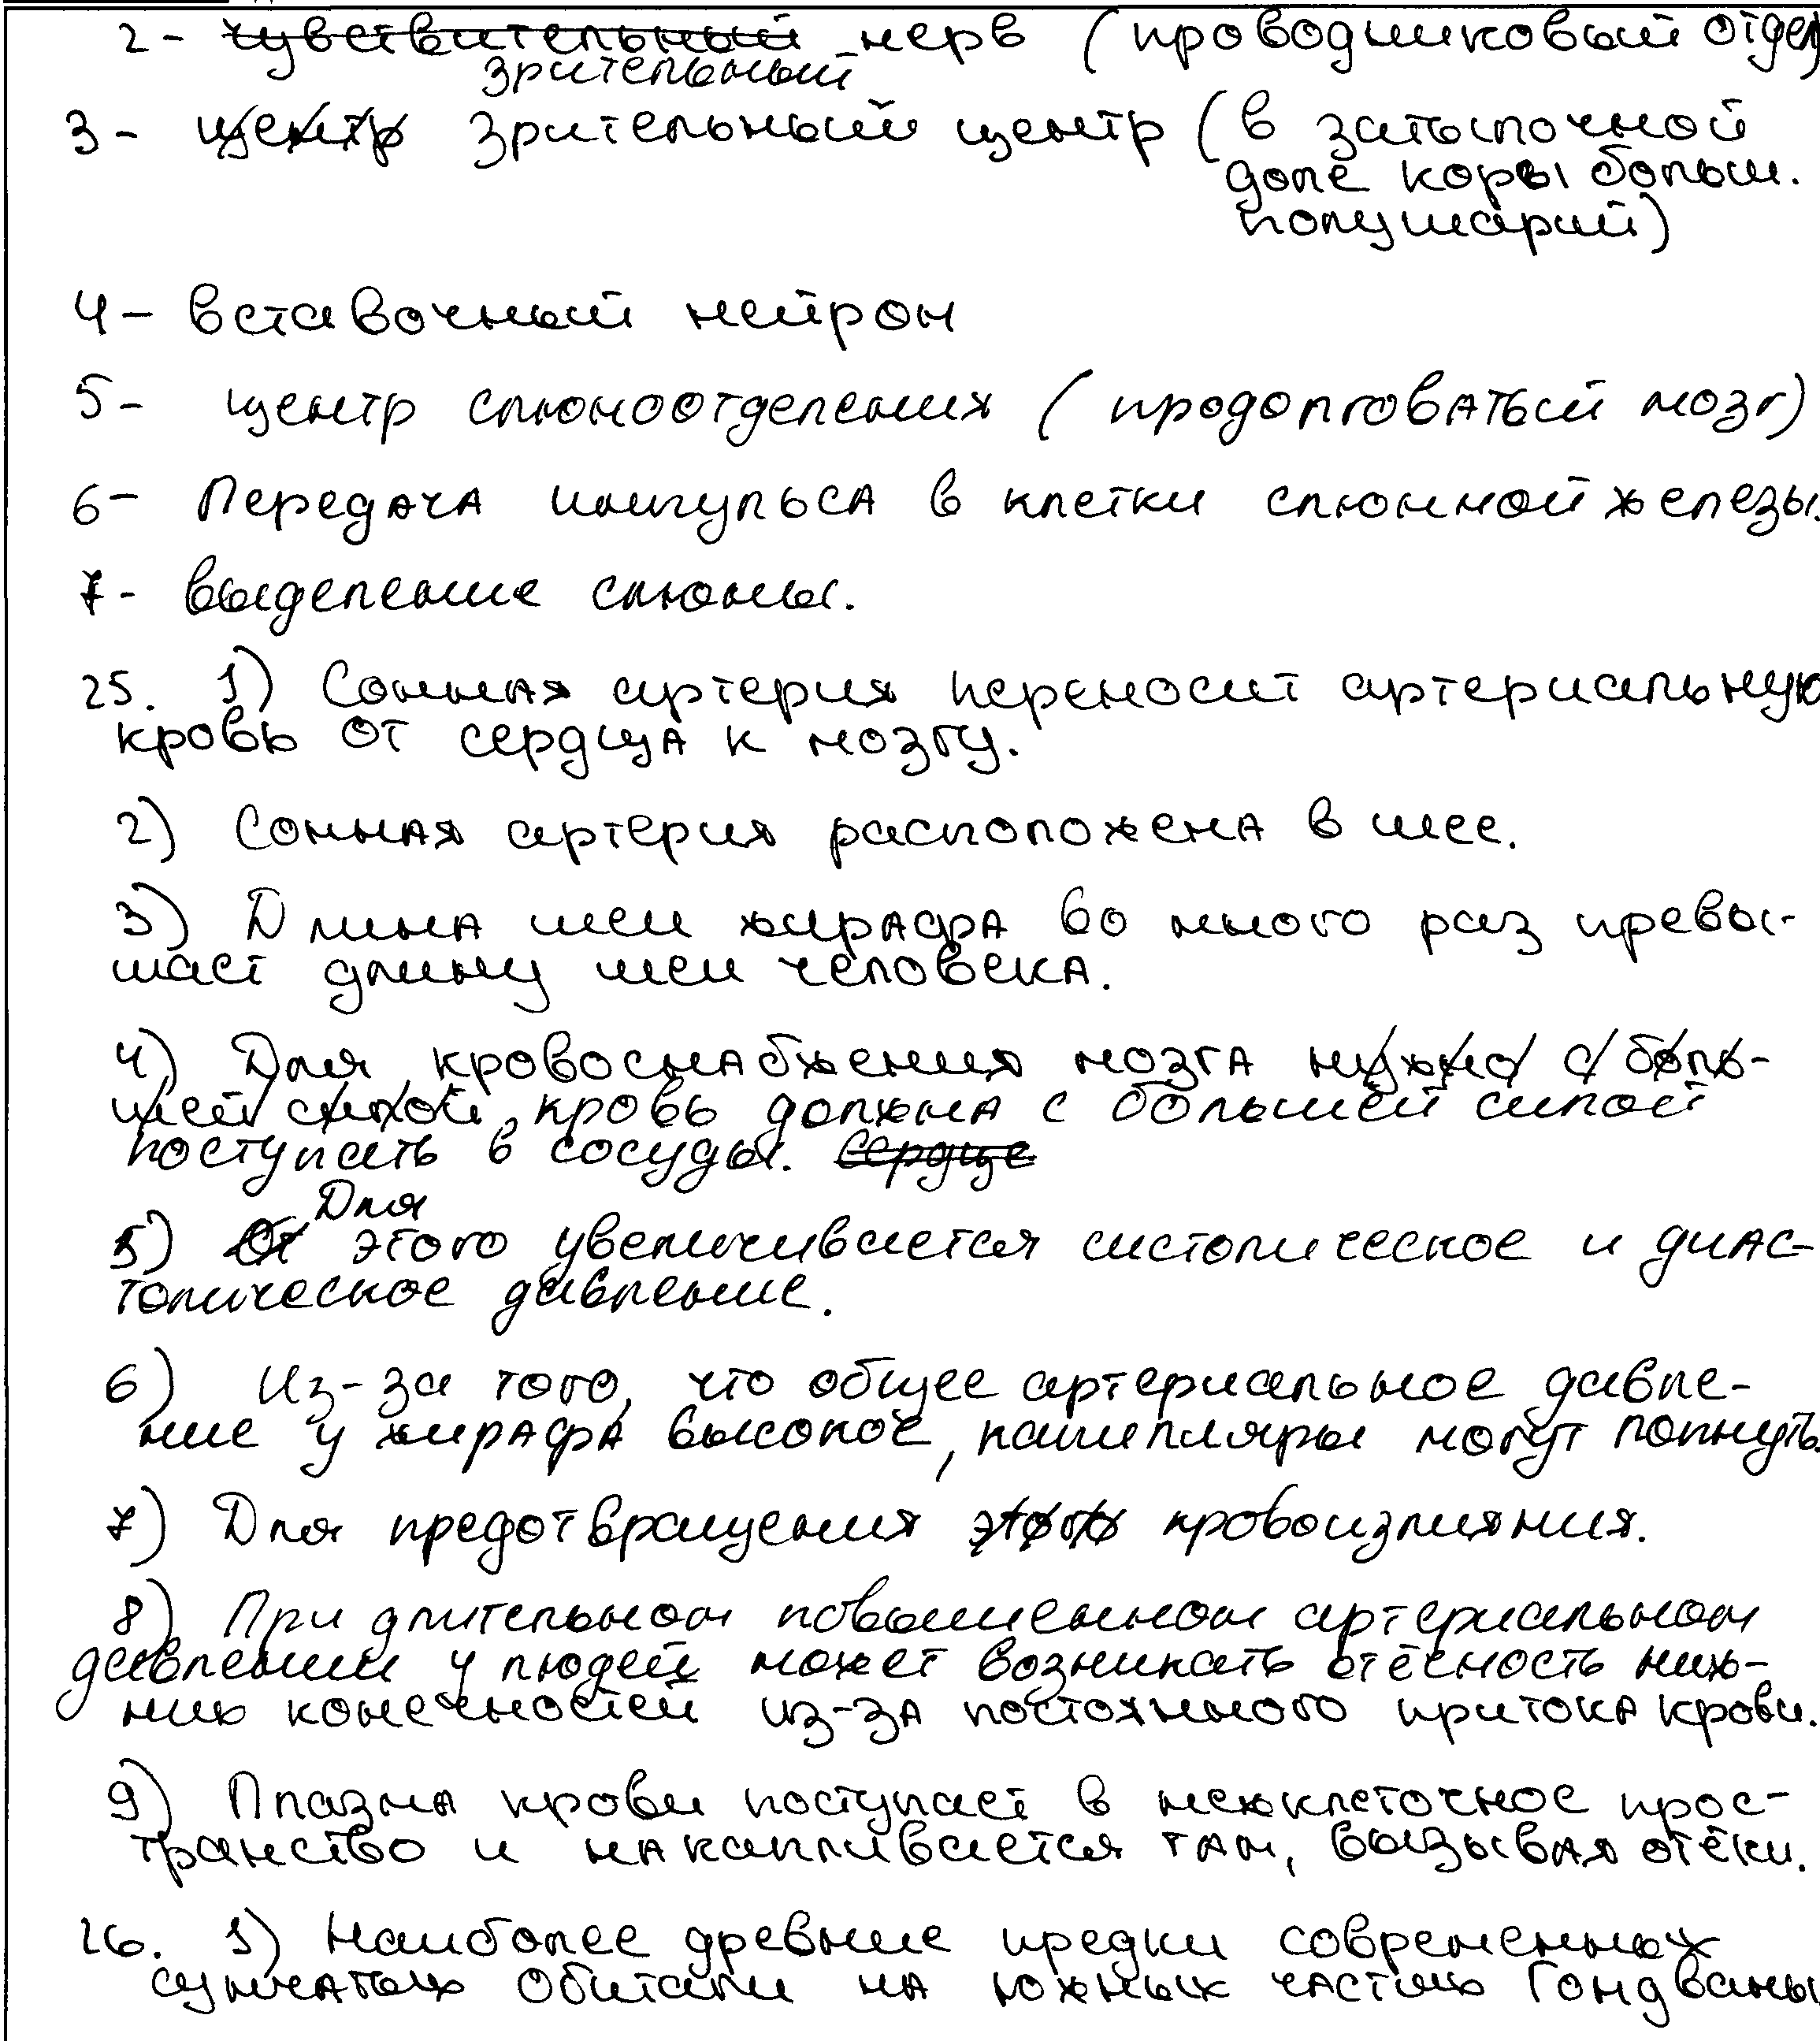 2- чувствительный нерв (проводниковый отдел)
зрительный
3- центр зрительный центр (в затылочной
доле коры больш.
полушарий)
4- вставочный нейрон
5- центр слюноотделения (продолговатый мозг)
6- Передача импульса в клетки слюнной железы.
7- выделение слюны.
25. 1) Сонная артерия переносит артериальную
кровь от сердца к мозгу.
2) Сонная артерия расположена в шее.
3) Длина шеи жирафа во много раз превы-
шает длину шеи человека.
4) Для кровоснабжения мозга нужно с боль-
шей силой кровь должна с большей силой
поступать в сосуды. сердце
Для
5) От этого увеличивается систолическое и диас-
толическое давление.
6) Из-за того, что общее артериальное давле-
ние у жирафа высокое, капилляры могут лопнуть.
7) Для предотвращения этого кровоизлияния.
8) При длительном повышенном артериальном
давлении у людей может возникать отёсность ниж-
них конечностей из-за постоянного притока крови.
9) Плазма крови поступает в межклеточное прос-
транство и накапливается там, вызывая отёки.
26. 1) Наиболее древние предки современных
сумчатых обитали на южных частях Гондваны